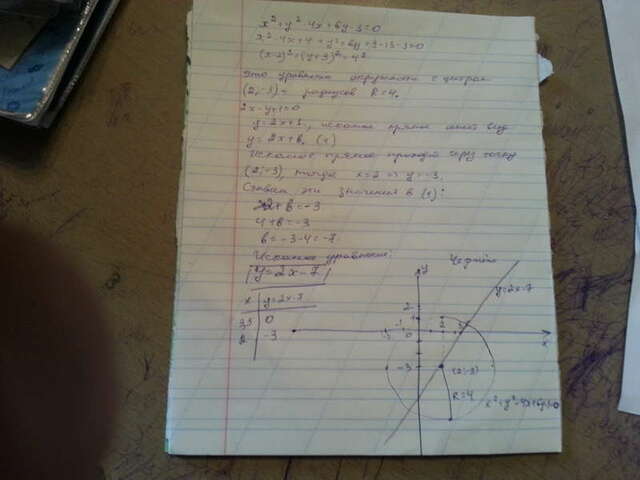 x² + y² - 4x + 6y - 3 = 0
x² - 4x + 4 + y² + 6y + 9 - 13 - 3 = 0
(x-2)² + (y+3)² = 4²
Это уравнение окружности с центром
(2; -3) и радиусом R = 4.
2x - y + 1 = 0
y = 2x + 1, искомая прямая имеет вид
y = 2x + b. (*)
Искомая прямая проходит через точку
(2; -3), тогда x = 2 => y = -3.
Ставим эти значения в (*):
2·2 + b = -3
4 + b = -3
b = -3 - 4 = -7
Искомое уравнение: Чертёж
y = 2x - 7
x y = 2x - 7
3,5 0
2 -3
y
y = 2x - 7
2
1
-3 -1 0 2
x
-3
(2; -3)
R = 4
x² + y² - 4x + 6y - 3 = 0